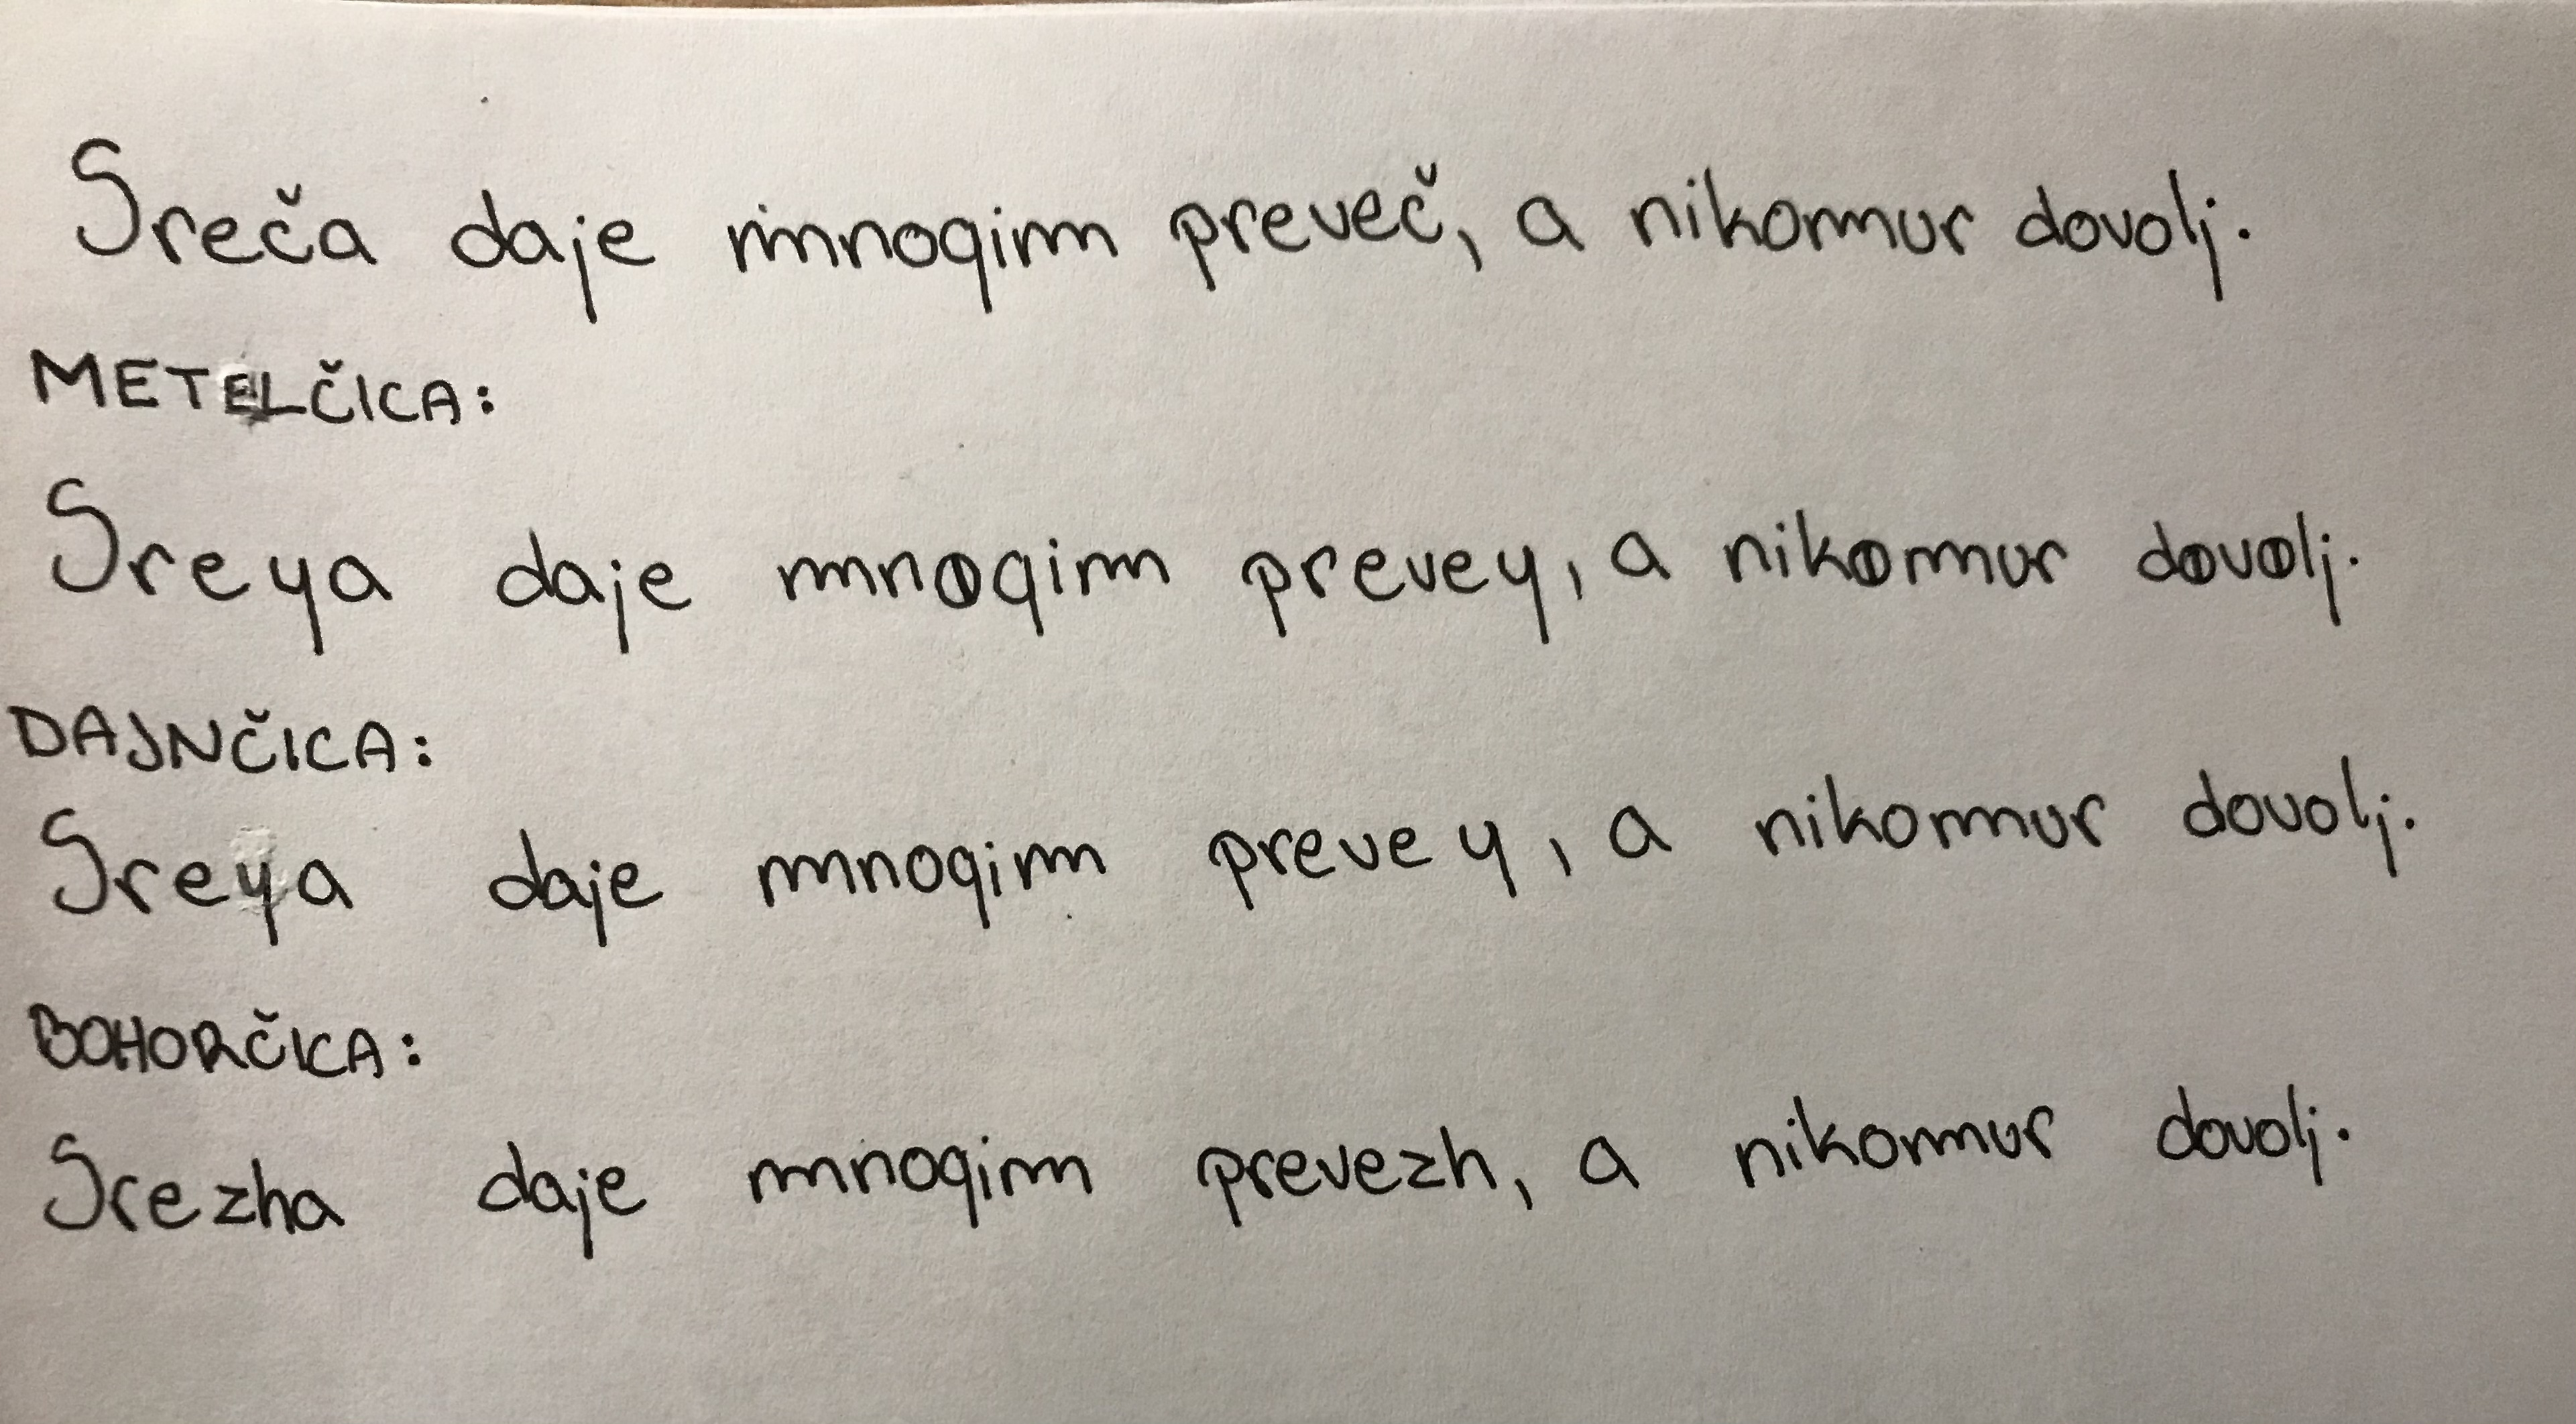 Sreča daje mnogim preveč, a nikomur dovolj.
METELČICA:
Sreya daje mnꝋgim prevey, a nikꝋmur dꝋvꝋlj.
DAJNČICA:
Sreya daje mnogim prevey, a nikomur dovolj.
BOHORČICA:
Srezha daje mnogim prevezh, a nikomur dovolj.